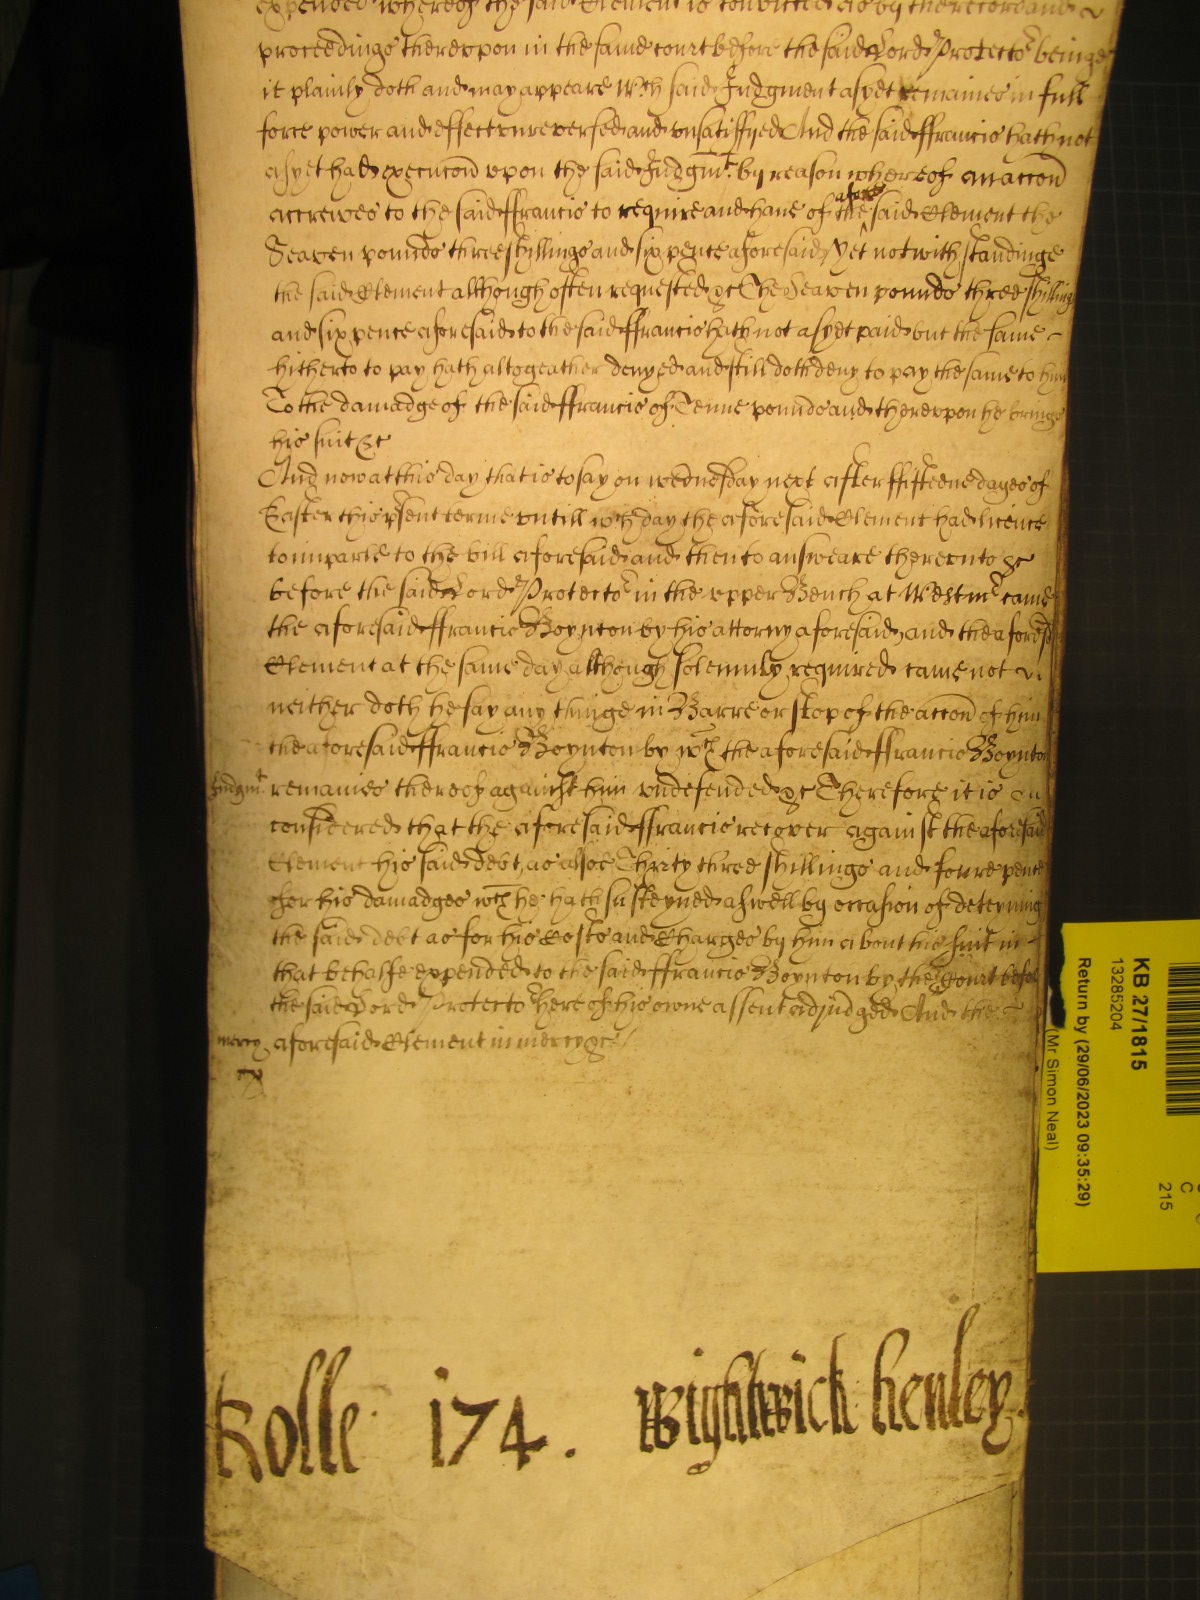 expended whereof the said Clement is convicted as by the record and
proceedings thereupon in the same court before the said Lord Protector beinge
it plainly doth and may appeare Wch said Judgment as yet remaines in full
force power and effect unreversed and unsatisfyed And the said ffrancis hath not
as yet had execucon upon the said Judgmt. by reason whereof an accon
accrewes to the said ffrancis to require and have of the afore said Clement the
Seaven pounds three shillings and six pence aforesaid Yet notwithstandinge
the said Clement although often requested &c The Seaven pounds three shillings
and six pence aforesaid to the said ffrancis hath not as yet paid but the same
hitherto to pay hath altogeather denyed and still doth deny to pay the same to him
To the damadge of the said ffrancis of Tenne pounds and thereupon he brings
his suit &c
And now at this day that is to say on wednesday next after ffifteene dayes of
Easter this psent terme untill wch day the aforesaid Clement had licence
to imparle to the bill aforesaid and then to answeare thereunto &c
before the said Lord Protector in the upper Bench at Westmr came
the aforesaid ffrancis Boynton by his attorny aforesaid and the aforesd
Clement at the same day although solemnly required came not
neither doth he say any thinge in Barre or stop of the accon of him
the aforesaid ffrancis Boynton by wch the aforesaid ffrancis Boynton
Judgmt remaines thereof against him undefended &c Therefore it is
considered that the aforesaid ffrancis recover against the aforesaid
Clement his said debt, as alsoe Thirty three shillings and foure pence
for his damadges wch he hath susteyned aswell by occasion of deteyning
the said debt as for his Costs and Charges by him about his suit in
that behalfe expended to the said ffrancis Boynton by the Court before
the said Lord Protector here of his owne assent adjudged And the
mercy aforesaid Clement in mercy &c
Rolle 174. Wightwick Henley
KB 27/1815
13285204
Return by (29/06/2023 09:35:29)
(Mr Simon Neal)
C
215